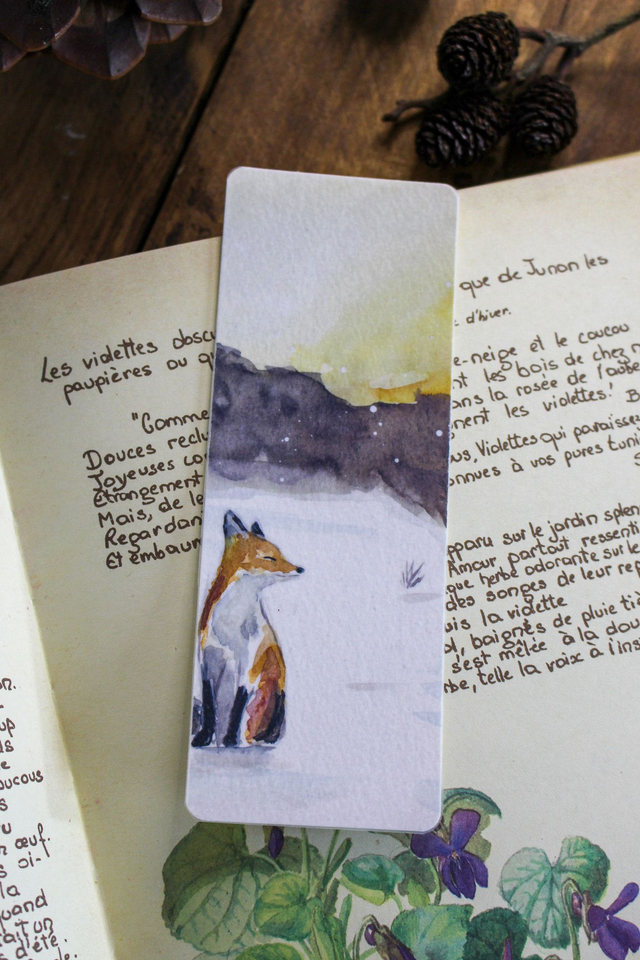 Les violettes obscu
paupières ou q
"Comme
Douces reclu
Joyeuses co
Étrangement
Mais, de le
Regardan
Et embaum
que de Junon les
d'hiver.
e-neige et le coucou
nt les bois de chez n
ans la rosée de l'aube
nent les violettes!
us, Violettes qui paraisse
onnues à vos pures tuni
pparu sur le jardin splen
Amour partout ressenti
que herbe odorante sur le
des songes de leur rep
uis la violette
ol, baignés de pluie tiè
s'est mêlée à la dou
rbe, telle la voix à l'ins
on.
up
ds
e
oucous
s
ru
n œuf.
s oi-
la
quand
t un
d'été.